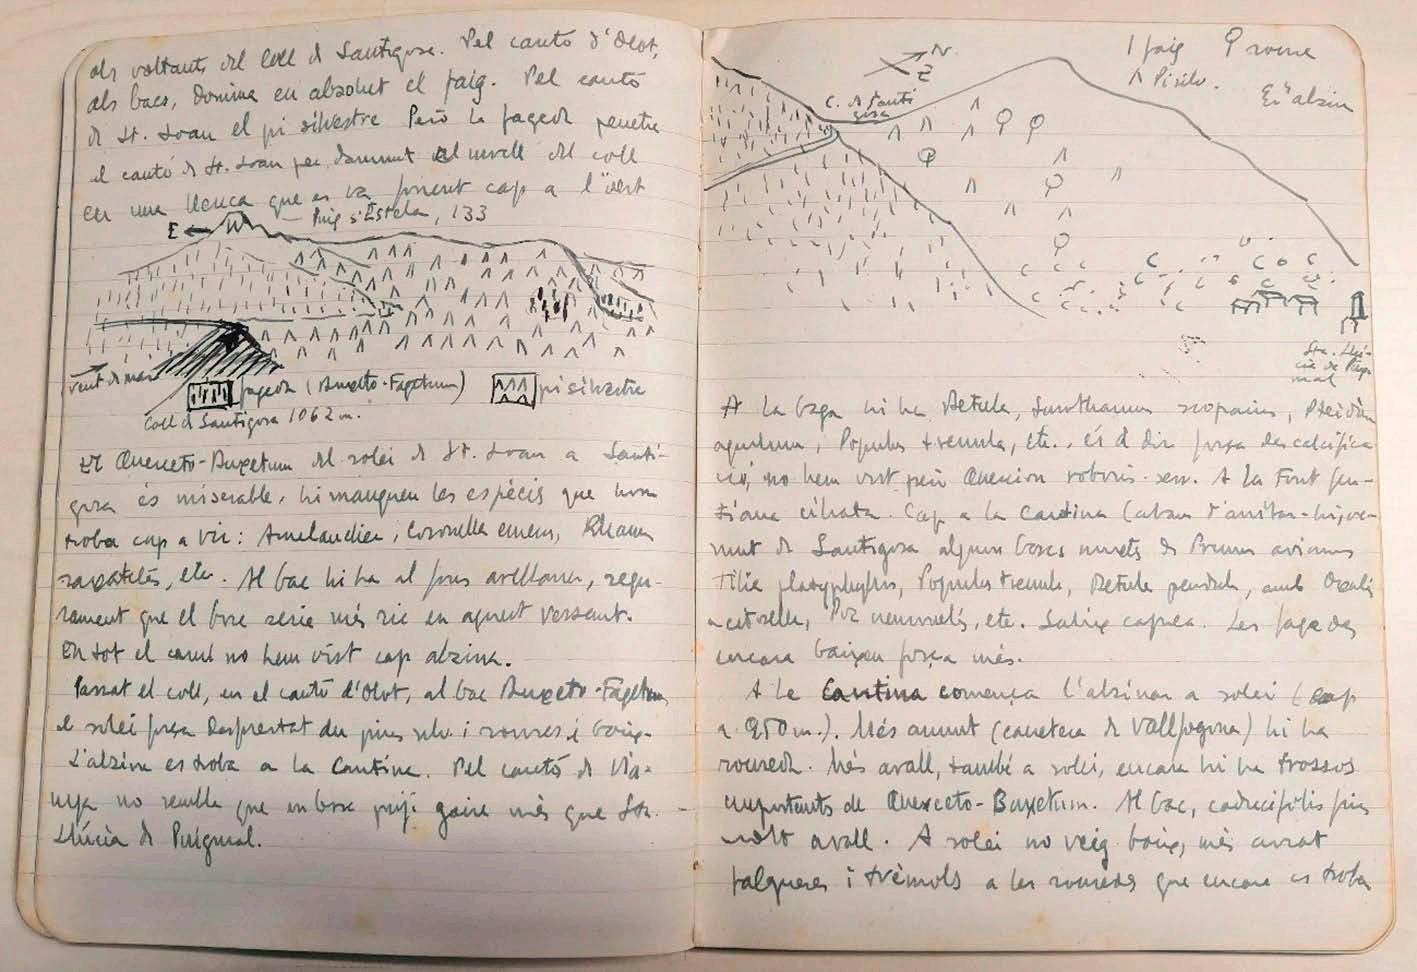 als voltants del Coll d Santigosa. Pel cantó d'Olot,
als bacs, domina en absolut el faig. Pel cantó
d St. Joan el pi silvestre Però la fageda penetra
el cantó d St. Joan per damunt el nivell del coll
en una llenca que es va fonent cap a l'oest
E
Puig s'Estela, 133
vent d mar
fageda (Buxeto-Fagetum)
pi silvestre
Coll d Santigosa 1062 m.
El Querceto-Buxetum del solei d St. Joan a Santi-
gosa és miserable, hi manquen les espècies que hom
troba cap a Vic: Amelanchier, Coronilla emerus, Rhamnus
saxatilis, etc. Al bac hi ha al fons avellaner, segu-
rament que el bosc seria més ric en aquest vessant.
En tot el camí no hem vist cap alzina.
Passat el coll, en el cantó d'Olot, al bac Buxeto-Fagetum,
el solei força desforestat du pins silv. i roures i boix.
L'alzina es troba a la Cantina. Pel cantó de Via-
nya no sembla que un bosc pugi gaire més que Sta.
Llúcia d Puigmal.
N.
E
1 faig
roure
Λ Pi silv.
alzin
C. d Santi
gosa
Sta. Llú-
cia de Puig
mal
A la baga hi ha Betula, Sarothamnus scoparius, Pteridium
aquilinum, Populus tremula, etc., és a dir força descalcifica-
ció, no hem vist però Quercion roboris-sess. A la Font Gen-
tiana ciliata. Cap a la Cantina (abans d'arribar-hi, ve-
nint de Santigosa alguns boscs mixtes de Prunus avium
Tilia platyphyllos, Populus tremula, Betula pendula, amb Oxalis
acetosella, Poa nemoralis, etc. Salix caprea. Les fagedes
encara baixen força més.
A la Cantina comença l'alzinar a solei (cap
a 950 m.). Més amunt (carretera de Vallfogona) hi ha
roureda. Més avall, també a solei, encara hi ha trossos
importants de Querceto-Buxetum. Al bac, caducifolis fins
molt avall. A solei no veig boix, més aviat
falgueres i trèmols a les rouredes que encara es troba